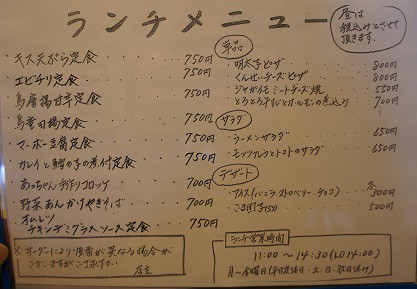 ランチメニュー
昼は
税込みとさせて
頂きます。
キス天ぷら定食 750円
エビチリ定食 750円
鳥唐揚甘辛定食 750円
鳥竜田揚定食 750円
マーボー豆腐定食 750円
カレイと鱈の子の煮付定食 700円
あっちゃん手作りコロッケ 700円
野菜あんかけやきそば 700円
オムレツ
チキンデミグラスソース定食 750円
単品
明太子ピザ 800円
くんせいチーズピザ 800円
ジャガイモミートチーズ焼 550円
とろとろすじとホルモンの煮込み 700円
サラダ
ラーメンサラダ 650円
モッツァレラとトマトのサラダ 650円
デザート
アイス(バニラ・ストロベリー・チョコ) 各300円
ごま団子 500円
※オーダーにより順番が異なる場合が
ございますがご了承下さい
店主
ランチ営業時間
11:00〜14:30(LO14:00)
月〜金曜日(平日定休日・土・日・祝日休み)